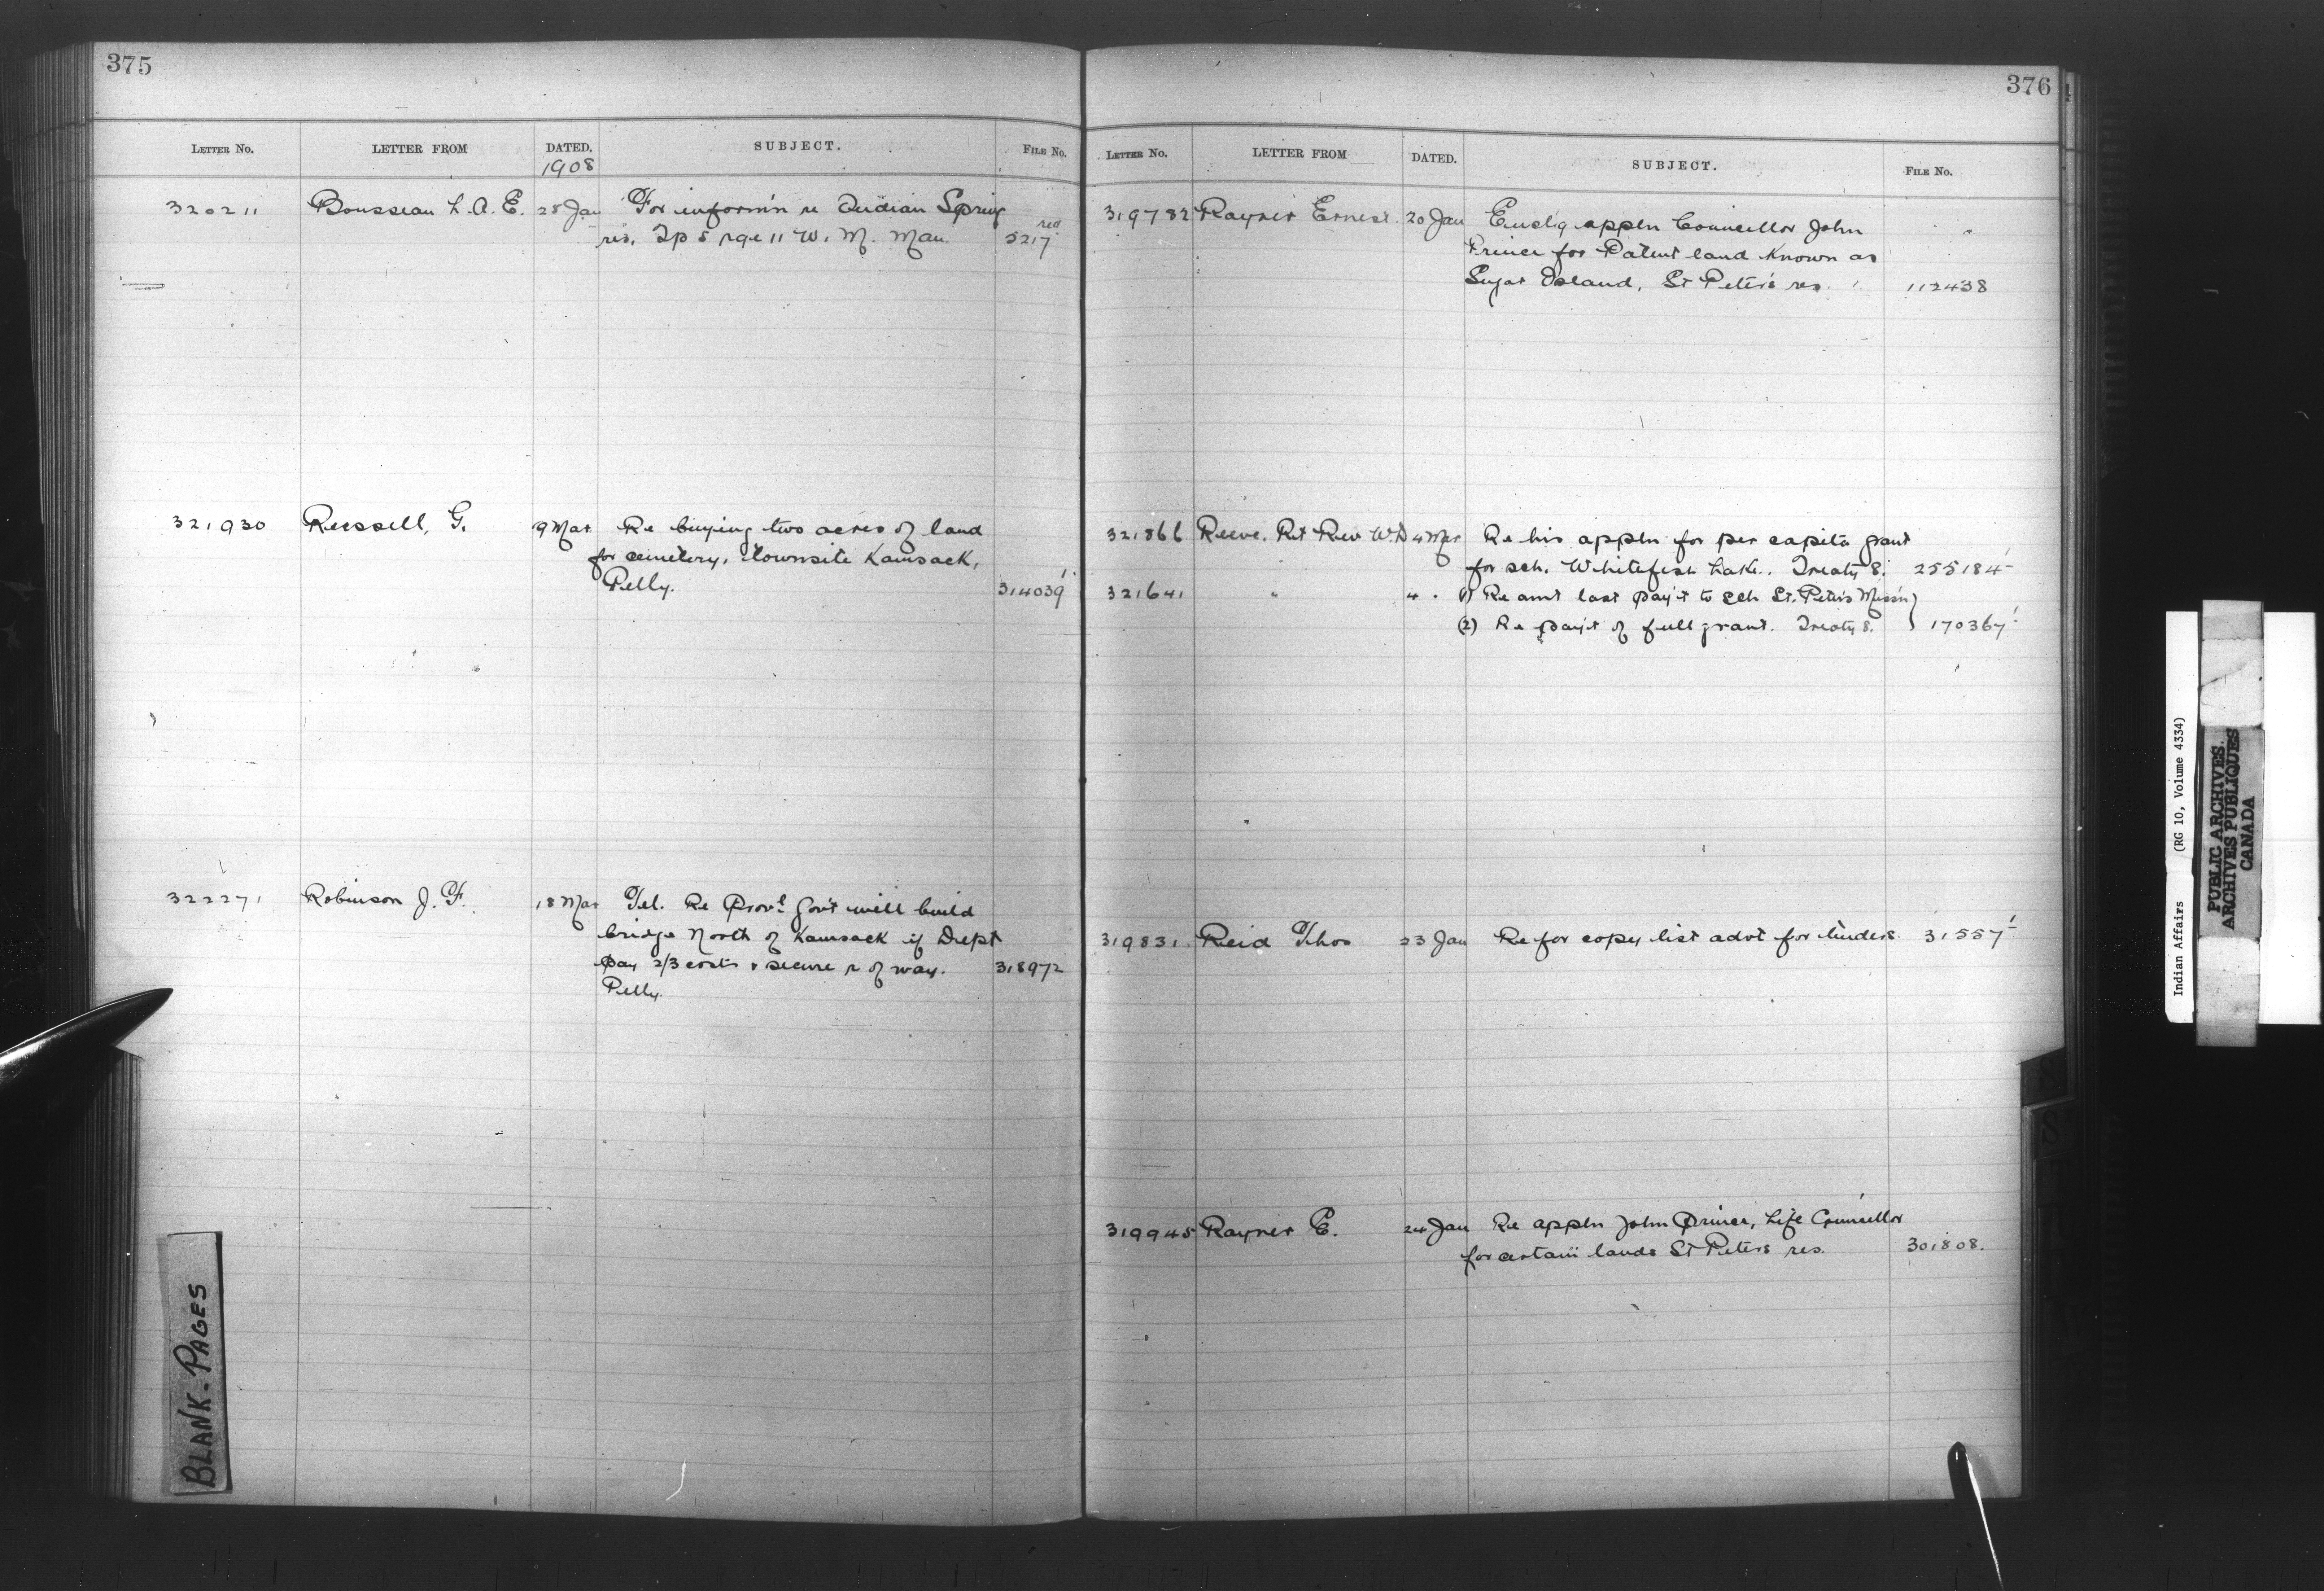 375
LETTER No. LETTER FROM DATED. SUBJECT. FILE No.
1908
320211 Rousseau L. A. E. 28 Jan For inform'n re Indian Spring
res. Tp 5 rge 11 W. M. Man. red 5217
321930 Russell, G. 9 Mar Re buying two acres of land
for cemetery, townsite Kamsack,
Pelly. 314039
322271 Robinson J. F. 18 Mar Tel. Re Provl Gov't will build
bridge North of Kamsack if Dept
pay 2/3 costs & secure r of way. 318972
Pelly.
BLANK-PAGES
376
LETTER No. LETTER FROM DATED. SUBJECT. FILE No.
319782 Rayner Ernest. 20 Jan Encl'g appln Councillor John
Prince for Patent land known as
Sugar Island, St Peter's res 112438
321866 Reeve. Rt Rev W. D 4 Mar Re his appln for per capita grant
for sch. Whitefish Lake. Treaty 8. 255184
321641 " 4 " (1) Re amt last pay't to sch St. Peter's Miss'n
(2) Re pay't of full grant. Treaty 8. } 170367
319831 Reid Thos 23 Jan Re for copy list advt for tenders. 31557
319945 Rayner E. 24 Jan Re appln John Prince, Life Councillor
for certain lands St Peters res. 301808.
Indian Affairs (RG 10, Volume 4334)
PUBLIC ARCHIVES
ARCHIVES PUBLIQUES
CANADA